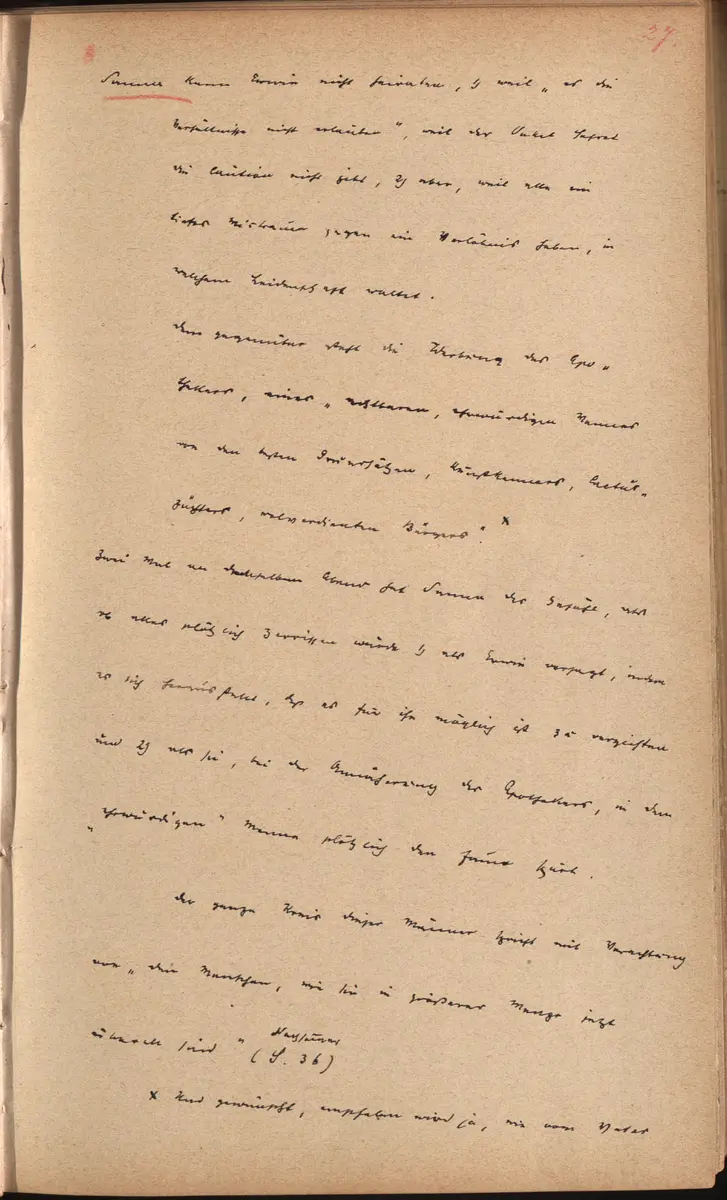 27.
Sanna kann Erwin nicht heiraten, 1) weil „es die
Verhältnisse nicht erlauben", weil der Onkel Hofrat
die Caution nicht gibt, 2) aber, weil alle ein
tiefes Mistrauen gegen ein Verlöbnis haben, in
welchem Leidenschaft waltet.
Dem gegenüber steht die Werbung des Apo„
thekers, eines „achtbaren, ehrwürdigen Mannes
von den besten Grundsätzen, Kunstkenners, Cactus„
züchters, wolverdienten Bürgers". x
Zwei Mal an demselben Abend hat Sanna das Gefühl, als
ob alles plötzlich zerrissen würde 1) als Erwin versagt, indem
es sich herausstellt, daß es für ihn möglich ist zu verzichten
und 2) als sie, bei der Annäherung des Apothekers, in dem
„ehrwürdigen" Manne plötzlich den Faun spürt.
Der ganze Kreis dieser Männer spricht mit Verachtung
von „den Menschen, wie sie in größerer Menge jetzt
überall sind" (S. 36)
x Und gewünscht, empfohlen wird ja, wie vom Vater